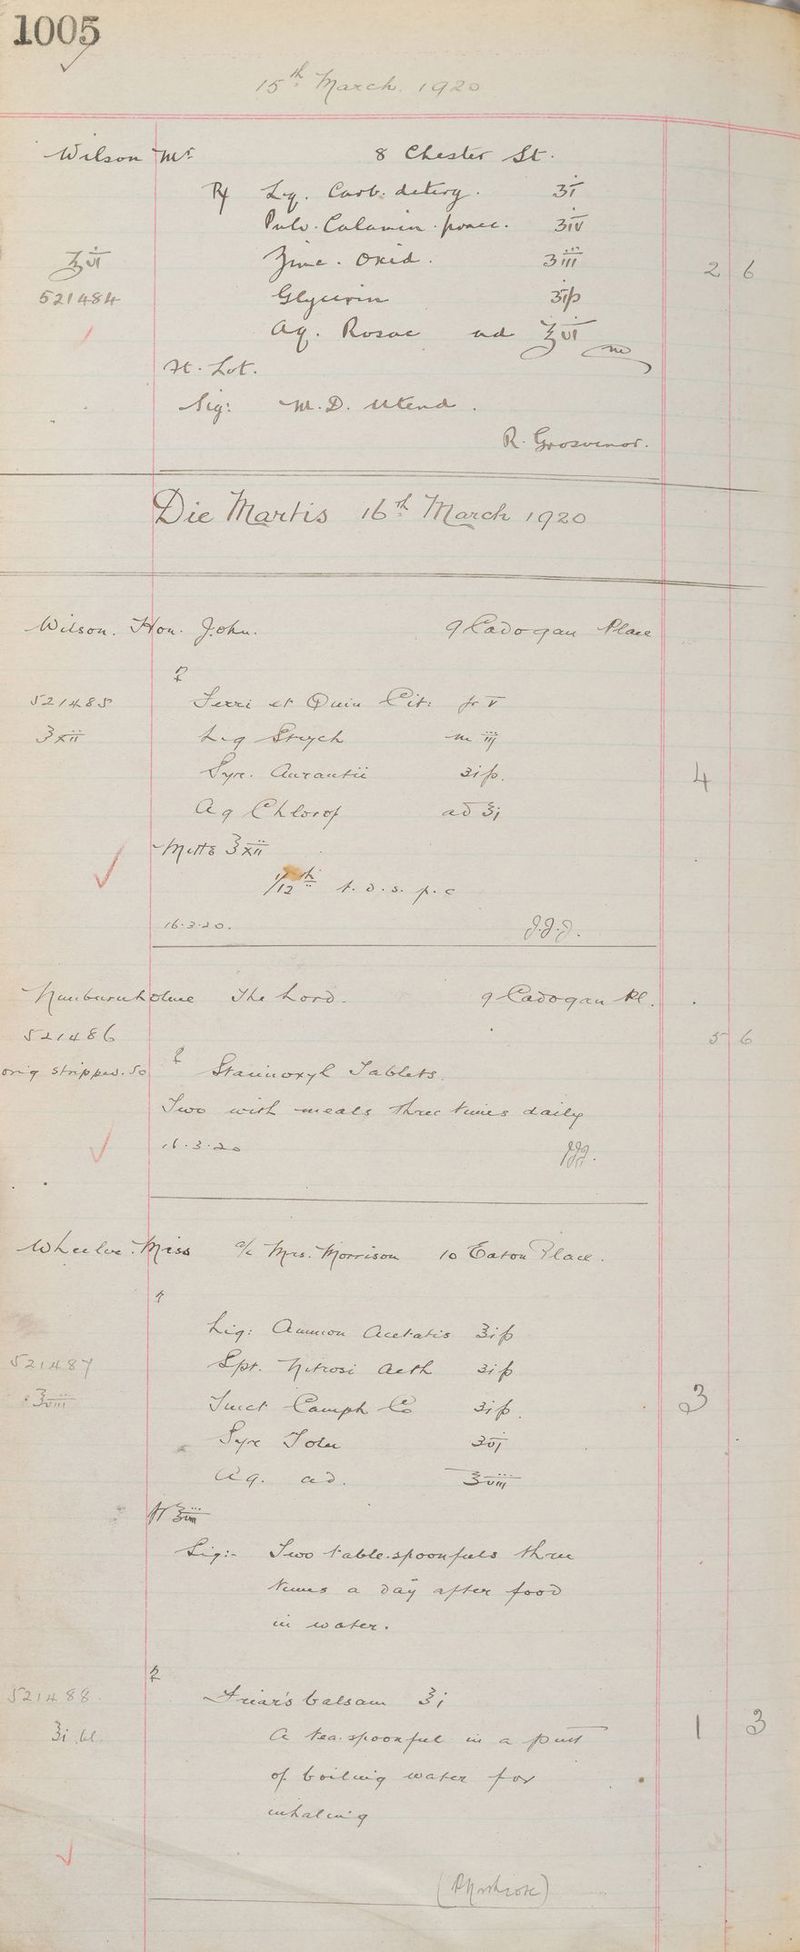 1005
15th March. 1920
Wilson Mr 8 Chester St.
℞ Lq. Carb. deterg. ʒi
Pulv. Calamin. ppaec. ʒiv
℥vi Zinc. Oxid. ʒiii 2 6
521484 Glycerin ʒiß
Aq. Rosae ad ℥vi
Ft. Lot.
Sig: M.D. Utend.
R. Grosvenor.
Die Martis 16th March 1920
Wilson. Hon. John. 9 Cadogan Place
℞
521485 Ferri et Quin Cit: gr v
℥xii Liq Strych m iij
Syr. Aurantii ʒiß. 4
Aq Chlorof ad ℥j
Mitte ℥xii
1/12th t.d.s. p.c
16.3.20. J.J.J.
Nunburnholme The Lord. 9 Cadogan Pl.
521486 5 6
orig stripped. 50 ℞ Stannoxyl Tablets.
Two with meals three times daily
16.3.20 JJJ.
Wheeler. Miss c/o Mrs. Morrison 10 Eaton Place.
℞
Liq: Ammon Acetatis ℥iß
521487 Spt. Nitrosi Aeth ʒiß
℥viii Tinct Camph Co ʒiß. 3
Syr Tolu ʒvi
Aq. ad. ℥viii
Ft ℥viii
Sig:- Two table.spoonfuls three
times a day after food
in water.
℞
521488. Friar's balsam ℥i
℥i bl. A tea.spoonful in a pint 1 3
of boiling water for
inhaling